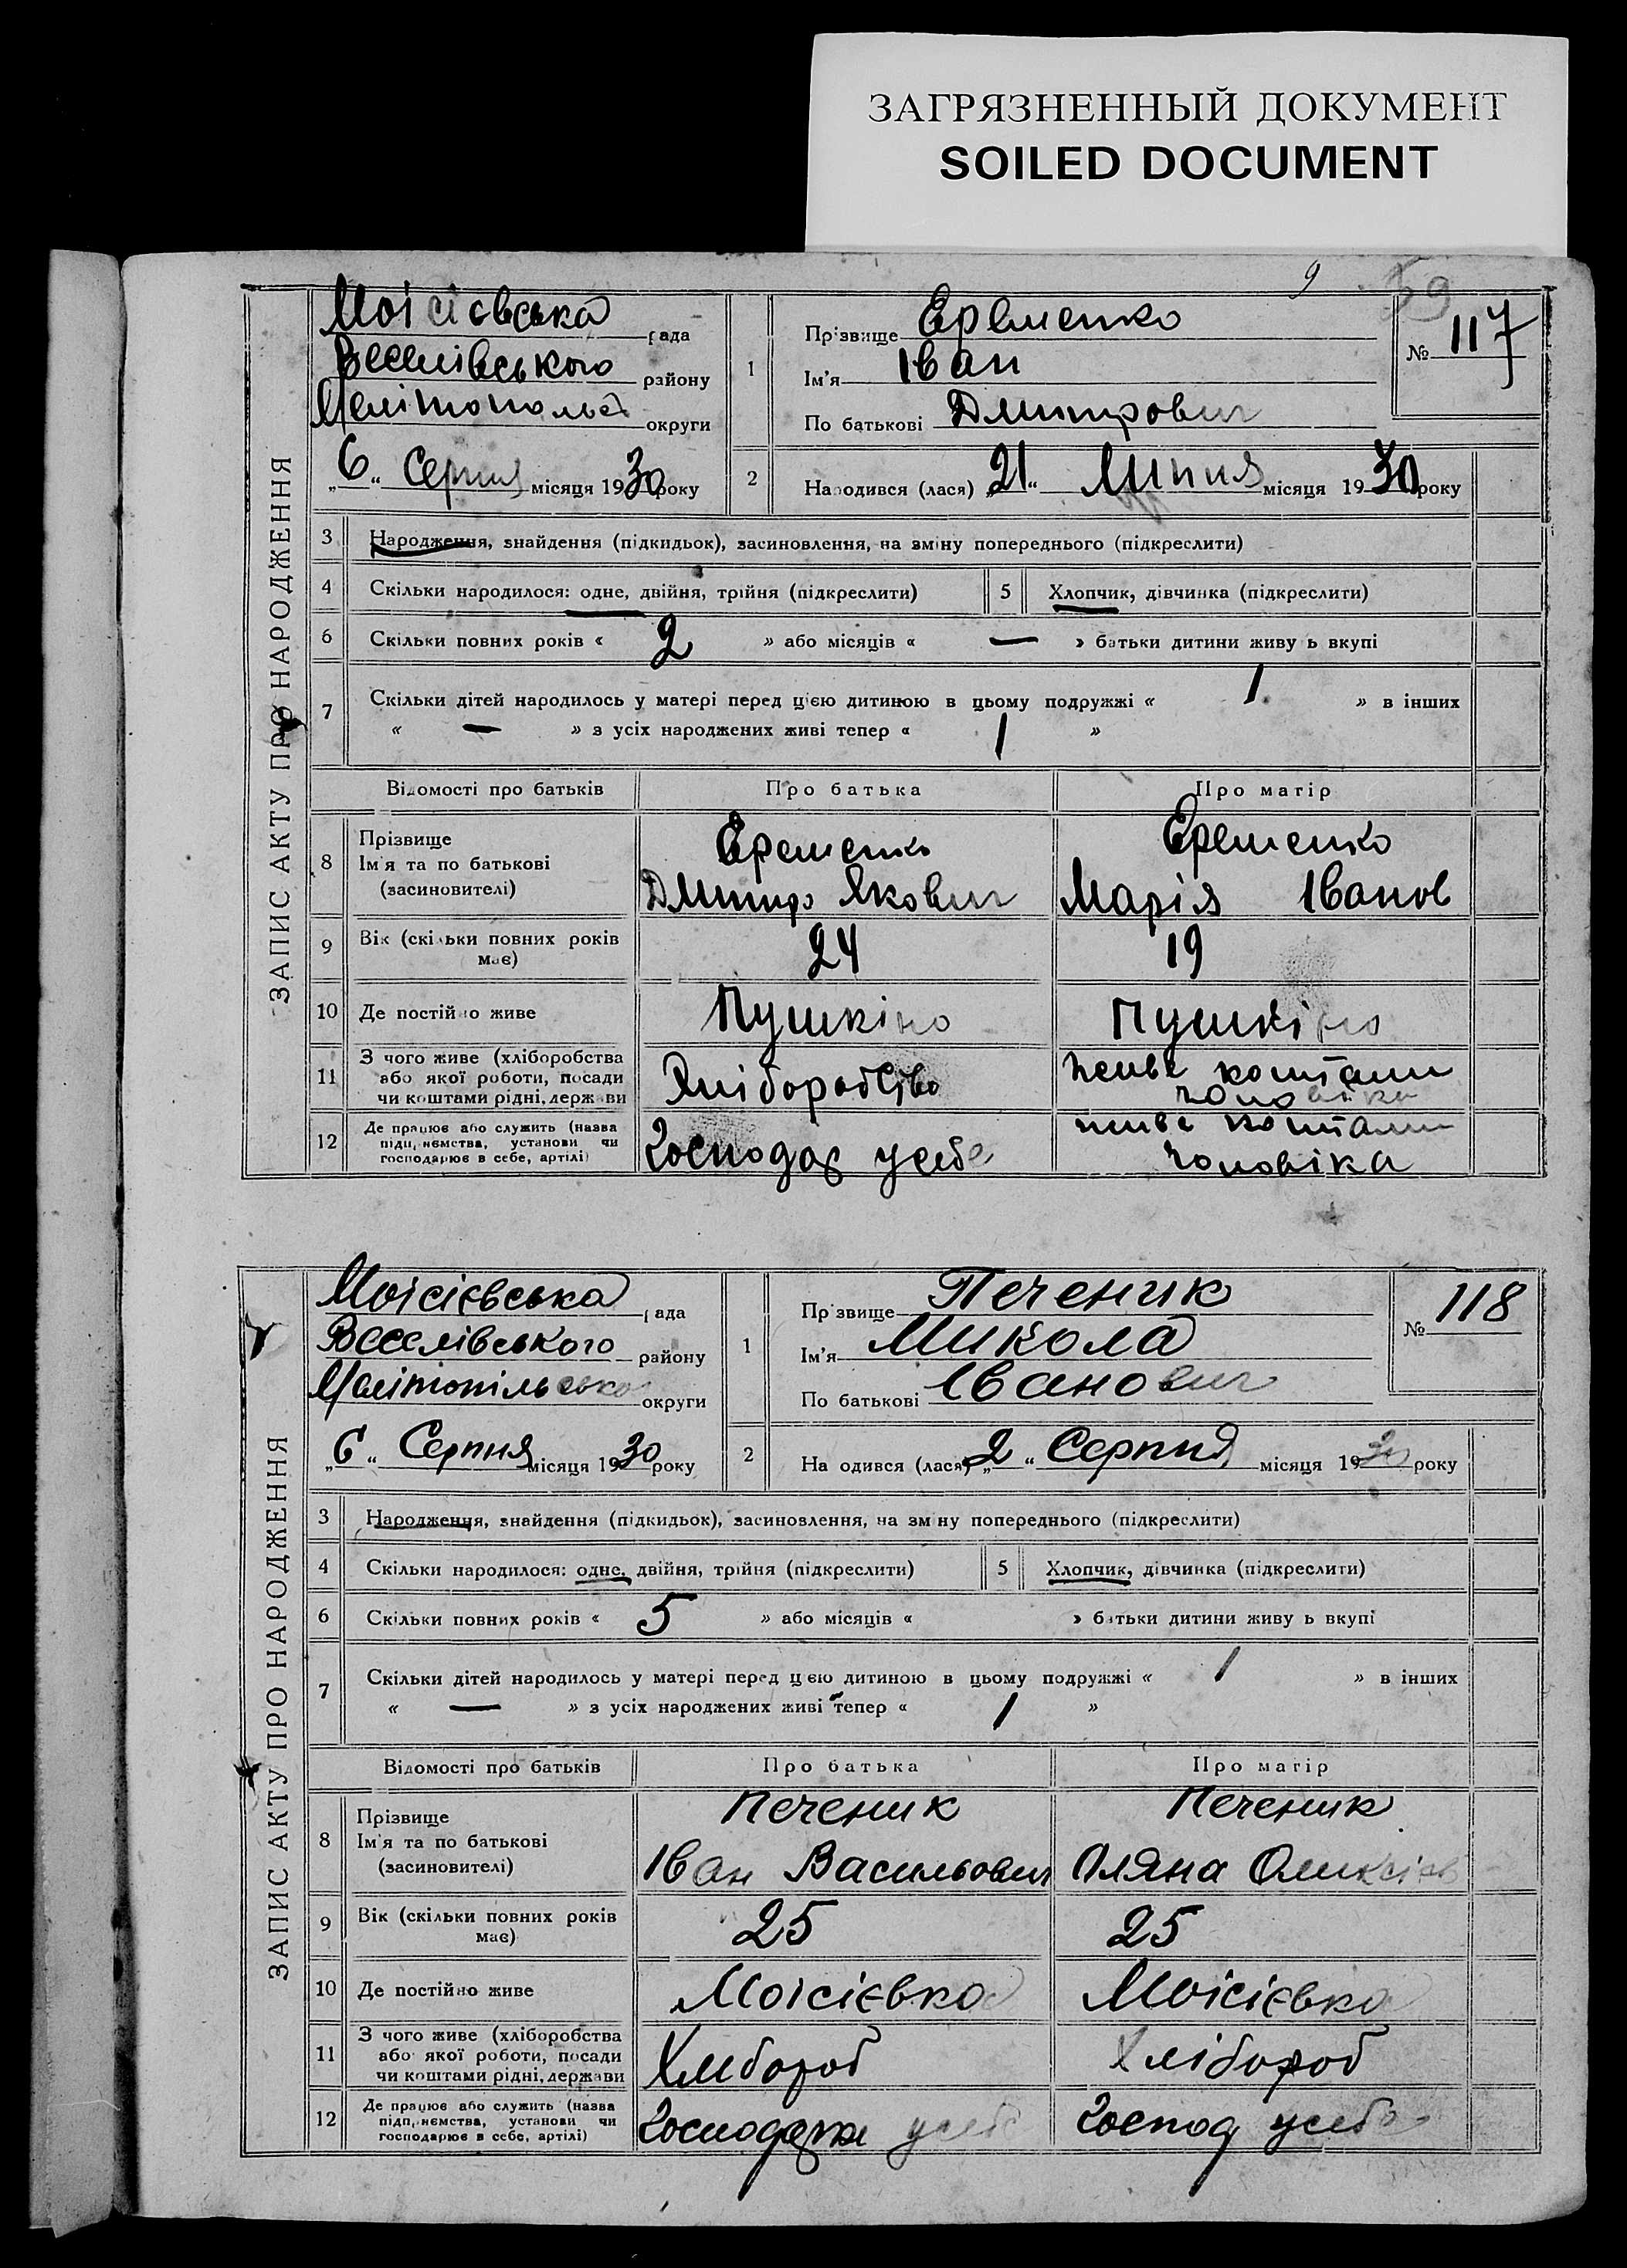 ЗАГРЯЗНЕННЫЙ ДОКУМЕНТ
SOILED DOCUMENT
9 59
ЗАПИС АКТУ ПРО НАРОДЖЕННЯ
Моісієвська рада
Веселівського району
Мелітопольск округи
„6“ Серпня місяця 1930 року
1
Прізвище Єременко
Ім'я Іван
По батькові Дмитрович
№ 117
2
Народився (лася) „21“ Липня місяця 1930 року
3 Народження, знайдення (підкидьок), засиновлення, на зміну попереднього (підкреслити)
4 Скільки народилося: одне, двійня, трійня (підкреслити) 5 Хлопчик, дівчинка (підкреслити)
6 Скільки повних років « 2 » або місяців « — » батьки дитини живуть вкупі
7 Скільки дітей народилось у матері перед цією дитиною в цьому подружжі « 1 » в інших
« — » з усіх народжених живі тепер « 1 »
Відомості про батьків Про батька Про матір
8 Прізвище
Ім'я та по батькові
(засиновителі)
Єременко
Дмитро Якович
Єременко
Марія Іванов
9 Вік (скільки повних років
має)
24 19
10 Де постійно живе Пушкіно Пушкіно
11 З чого живе (хліборобства
або якої роботи, посади
чи коштами рідні, держави
Хліборобство
живе коштами
чоловіка
12 Де працює або служить (назва
підприємства, установи чи
господарює в себе, артілі)
Господар усебе
живе коштами
чоловіка
ЗАПИС АКТУ ПРО НАРОДЖЕННЯ
Моісієвська рада
Веселівського району
Мелітопільсько округи
„6“ Серпня місяця 1930 року
1
Прізвище Печеник
Ім'я Микола
По батькові Іванович
№ 118
2
Народився (лася) „2“ Серпня місяця 1930 року
3 Народження, знайдення (підкидьок), засиновлення, на зміну попереднього (підкреслити)
4 Скільки народилося: одне, двійня, трійня (підкреслити) 5 Хлопчик, дівчинка (підкреслити)
6 Скільки повних років « 5 » або місяців « » батьки дитини живуть вкупі
7 Скільки дітей народилось у матері перед цією дитиною в цьому подружжі « 1 » в інших
« — » з усіх народжених живі тепер « 1 »
Відомості про батьків Про батька Про матір
8 Прізвище
Ім'я та по батькові
(засиновителі)
Печеник
Іван Васильович
Печеник
Оляна Оликсіїв
9 Вік (скільки повних років
має)
25 25
10 Де постійно живе Моісієвка Моісієвка
11 З чого живе (хліборобства
або якої роботи, посади
чи коштами рідні, держави
Хлібороб Хлібороб
12 Де працює або служить (назва
підприємства, установи чи
господарює в себе, артілі)
усебе Господ усебе